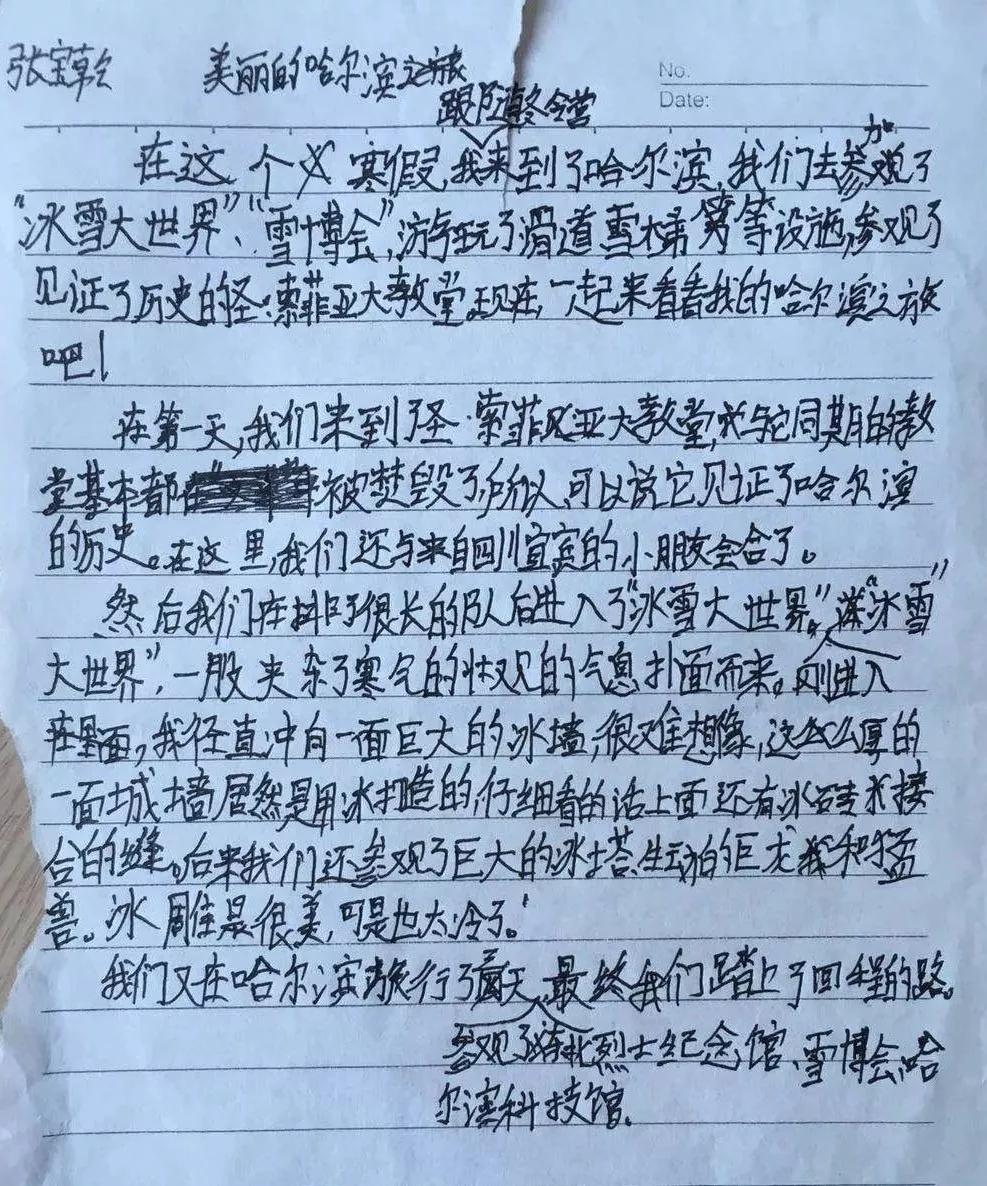 张宝乾 美丽的哈尔滨之旅
No.
Date:
跟随冬令营
在这个寒假,我来到了哈尔滨,我们去参观了
加
“冰雪大世界”、“雪博会”,游玩了滑道雪梯等等设施,参观了
见证了历史的圣·索菲亚大教堂,现在,一起来看看我的哈尔滨之旅
吧!
在第一天,我们来到了圣·索菲亚大教堂,与它同期的教
堂基本都被焚毁了,所以,可以说它见证了哈尔滨
的历史。在这里,我们还与来自四川宜宾的小朋友会合了。
然后我们在排了很长的队后进入了“冰雪大世界”,“冰雪
大世界”,一股夹杂了寒气的壮观的气息扑面而来。刚进入
在里面,我径直冲向一面巨大的冰墙,很难想像,这么厚的
一面城墙居然是用冰打造的,仔细看的话上面还有冰砖接
合的缝。后来我们还参观了巨大的冰塔,生动的巨龙和猛
兽。冰雕是很美,可是也太冷了!
我们又在哈尔滨旅行了几天,最终我们踏上了回程的路。
参观了东北烈士纪念馆、雪博会、哈
尔滨科技馆。